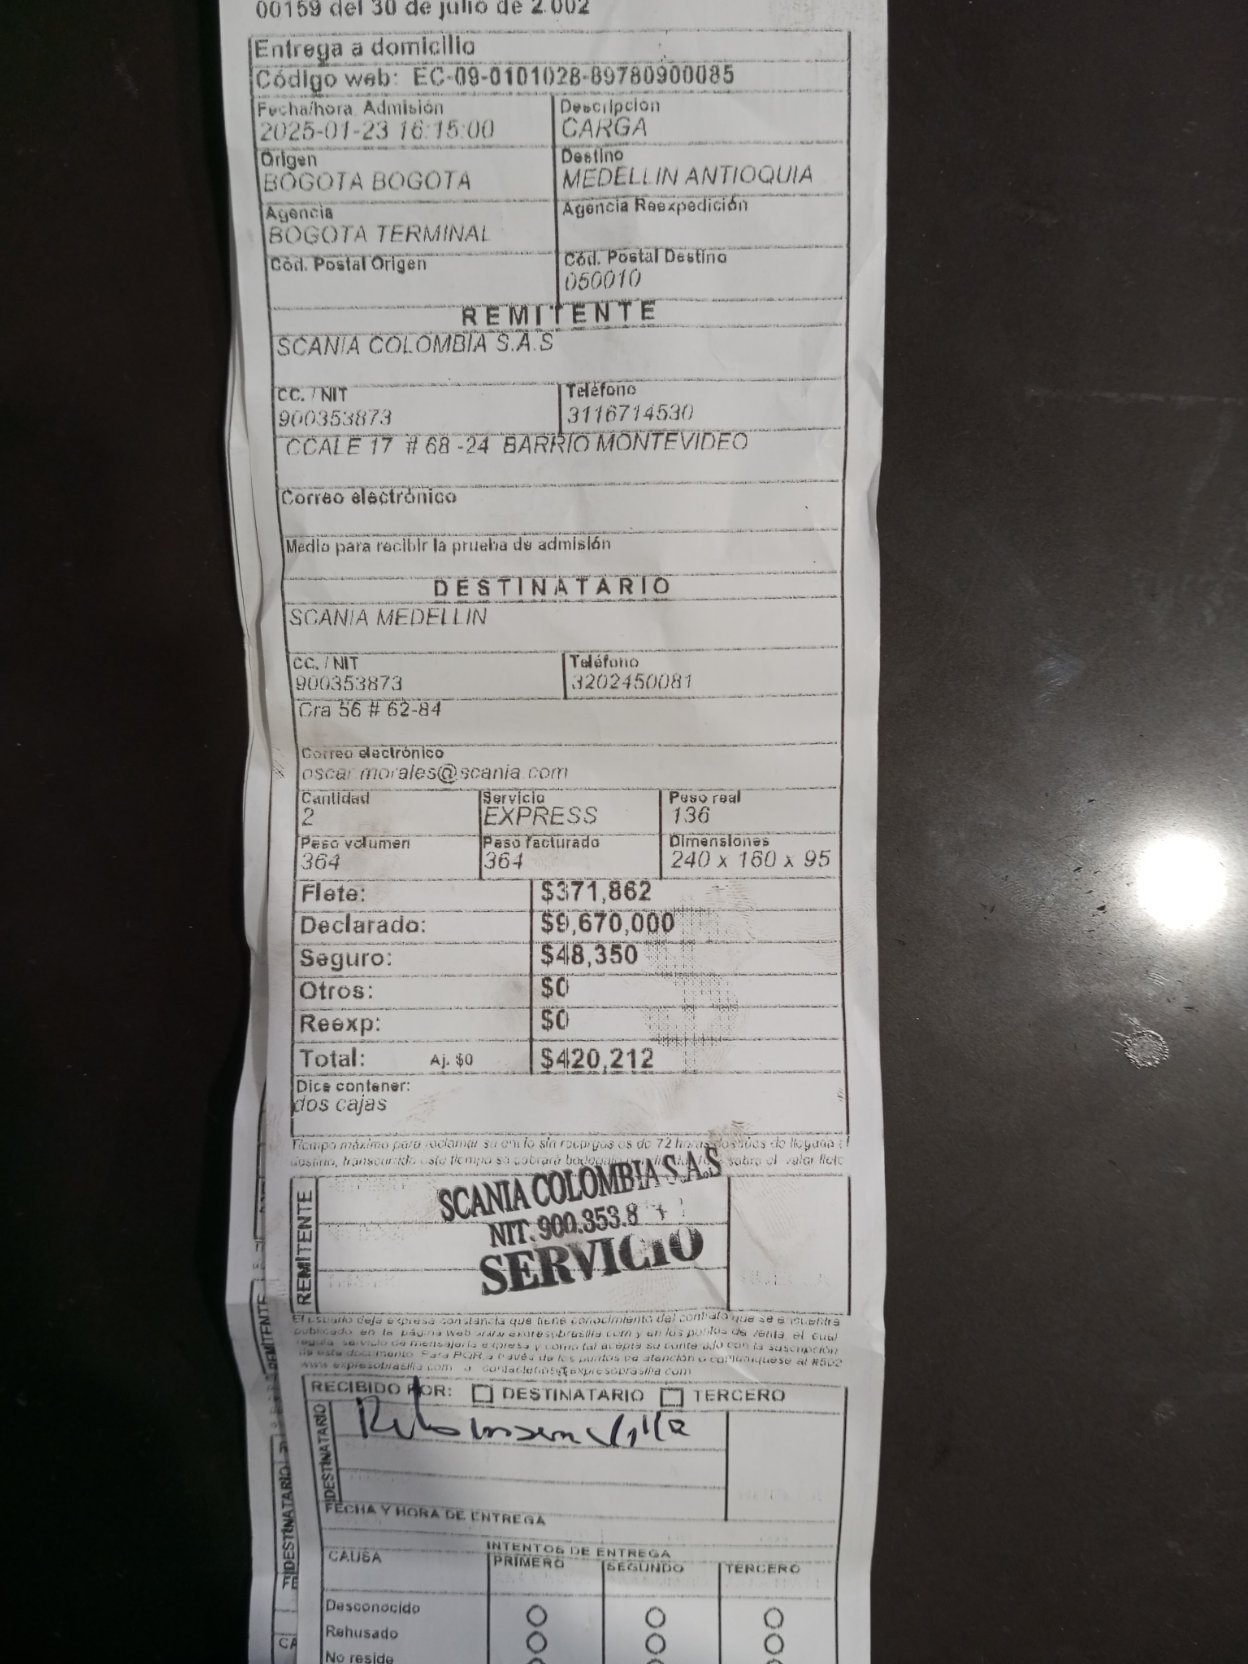 00159 del 30 de julio de 2.002
Entrega a domicilio
Código web: EC-09-0101028-89780900085
Fecha/hora Admisión
2025-01-23 16:15:00
Descripción
CARGA
Origen
BOGOTA BOGOTA
Destino
MEDELLIN ANTIOQUIA
Agencia
BOGOTA TERMINAL
Agencia Reexpedición
Cód. Postal Origen
Cód. Postal Destino
050010
REMITENTE
SCANIA COLOMBIA S.A.S
CC. / NIT
900353873
Teléfono
3116714530
CCALE 17 # 68 -24 BARRIO MONTEVIDEO
Correo electrónico
Medio para recibir la prueba de admisión
DESTINATARIO
SCANIA MEDELLIN
CC. / NIT
900353873
Teléfono
3202450081
Cra 56 # 62-84
Correo electrónico
oscar.morales@scania.com
Cantidad
2
Servicio
EXPRESS
Peso real
136
Peso volumen
364
Peso facturado
364
Dimensiones
240 x 160 x 95
Flete: $371,862
Declarado: $9,670,000
Seguro: $48,350
Otros: $0
Reexp: $0
Total: Aj. $0 $420,212
Dice contener:
dos cajas
Tiempo máximo para reclamar su envío sin recargos es de 72 horas después de llegada al
destino, transcurrido este tiempo se cobrará bodegaje sobre el valor flete
REMITENTE
SCANIA COLOMBIA S.A.S
NIT. 900.353.8
SERVICIO
El usuario deja expresa constancia que tiene conocimiento del contrato que se encuentra
publicado en la página web www.expresobrasilia.com y en los puntos de venta, el cual
regula servicio de mensajería expresa y como tal acepta su contenido con la suscripción
de este documento. Para PQR a través de los puntos de atención o comuníquese al #502
www.expresobrasilia.com
RECIBIDO POR: DESTINATARIO TERCERO
DESTINATARIO
FECHA Y HORA DE ENTREGA
CAUSA
INTENTOS DE ENTREGA
PRIMERO SEGUNDO TERCERO
Desconocido
Rehusado
No reside
REMITENTE
DESTINATARIO
CA